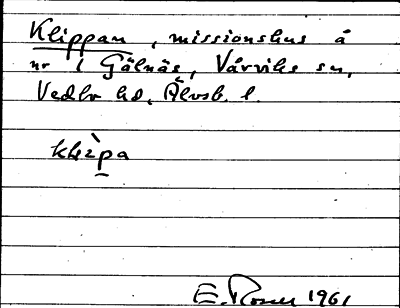 Klippan, missionshus å
nr 1 Gälnäs, Vårviks sn,
Vedbo hd, Älvsb. l.
klìpa
E. Rosen 1961